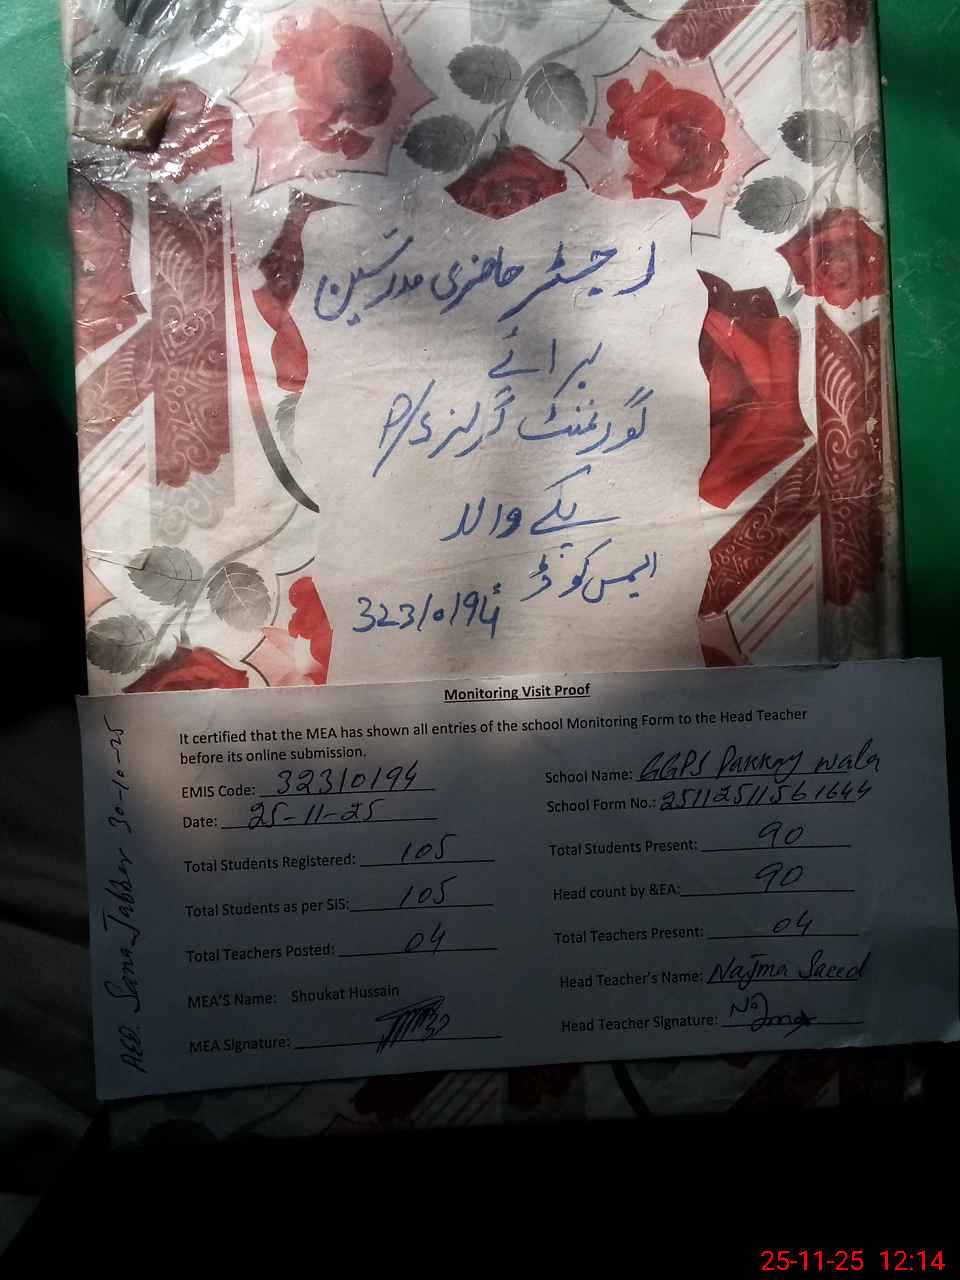 رجسٹر حاضری مدرسین
برائے
گورنمنٹ گرلز P/S
پکے والا
ایمس کوڈ
32310194
Monitoring Visit Proof
It certified that the MEA has shown all entries of the school Monitoring Form to the Head Teacher
before its online submission.
EMIS Code: 32310194
School Name: GGPS Pakkay wala
Date: 25-11-25
School Form No.: 25112511561644
Total Students Registered: 105
Total Students Present: 90
Total Students as per SIS: 105
Head count by &EA: 90
Total Teachers Posted: 04
Total Teachers Present: 04
MEA'S Name: Shoukat Hussain
Head Teacher's Name: Najma Saeed
MEA Signature:
Head Teacher Signature: Najma
AEO. Sana Jabber 30-10-25
25-11-25 12:14